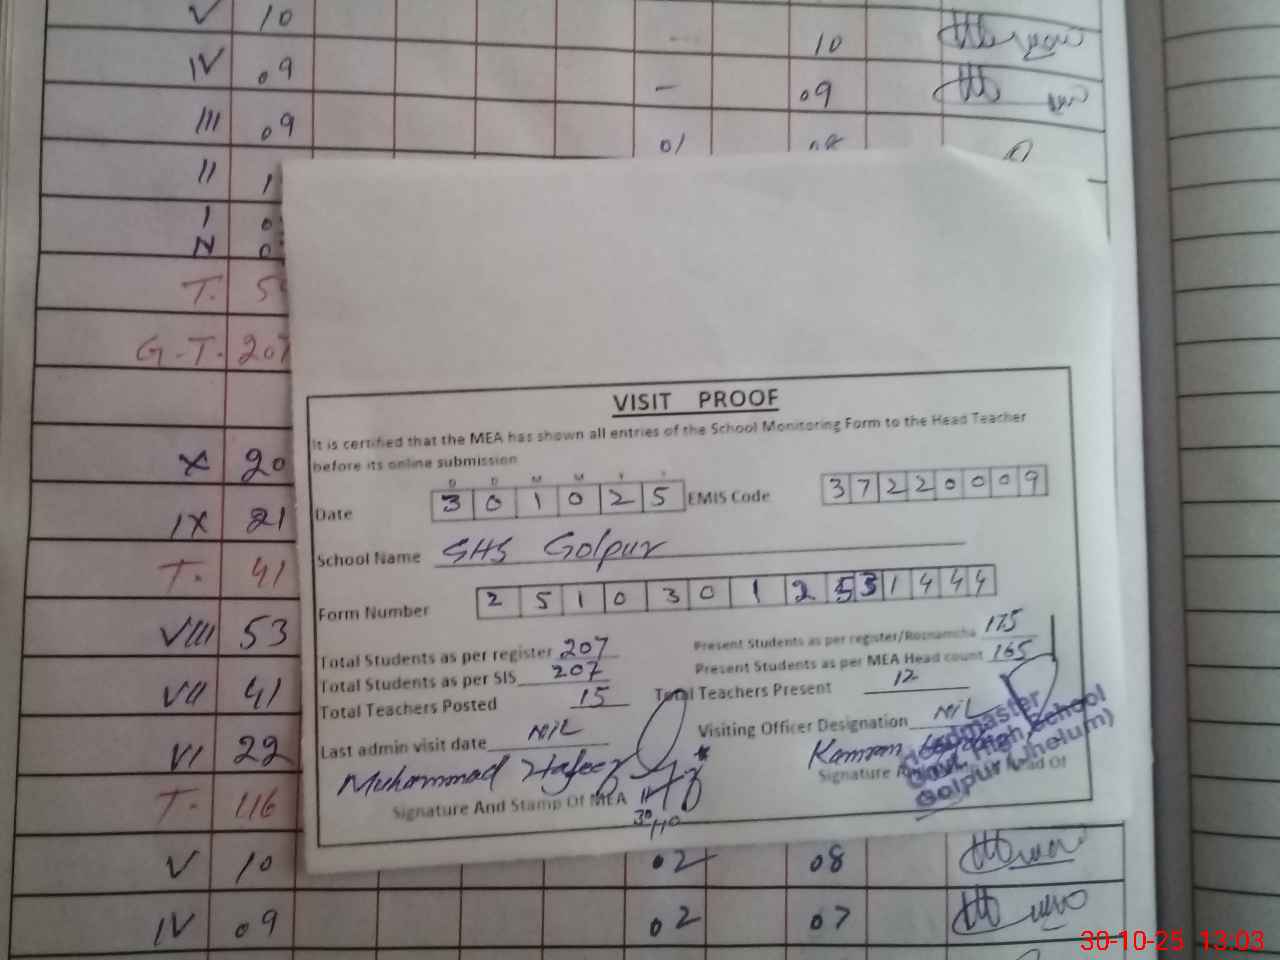 V 10 10
IV 09 - 09
III 09 01
II 1
I
N
T. 5
G.T. 207
X 20
IX 21
T. 41
VIII 53
VII 41
VI 22
T. 116
V 10 02 08
IV 09 02 07
VISIT PROOF
It is certified that the MEA has shown all entries of the School Monitoring Form to the Head Teacher
before its online submission
D D M M Y Y
Date 3 0 1 0 2 5 EMIS Code 3 7 2 2 0 0 0 9
School Name GHS Golpur
Form Number 2 5 1 0 3 0 1 2 5 3 1 4 4 4
Total Students as per register 207 Present Students as per register/Roznamcha 175
Total Students as per SIS 207 Present Students as per MEA Head count 165
Total Teachers Posted 15 Total Teachers Present 12
Last admin visit date NIL Visiting Officer Designation NIL
Muhammad Hafeez Kamran
Signature And Stamp Of MEA Signature
Headmaster
Govt. High School
Golpur (Jhelum)
30-10-25 13:03